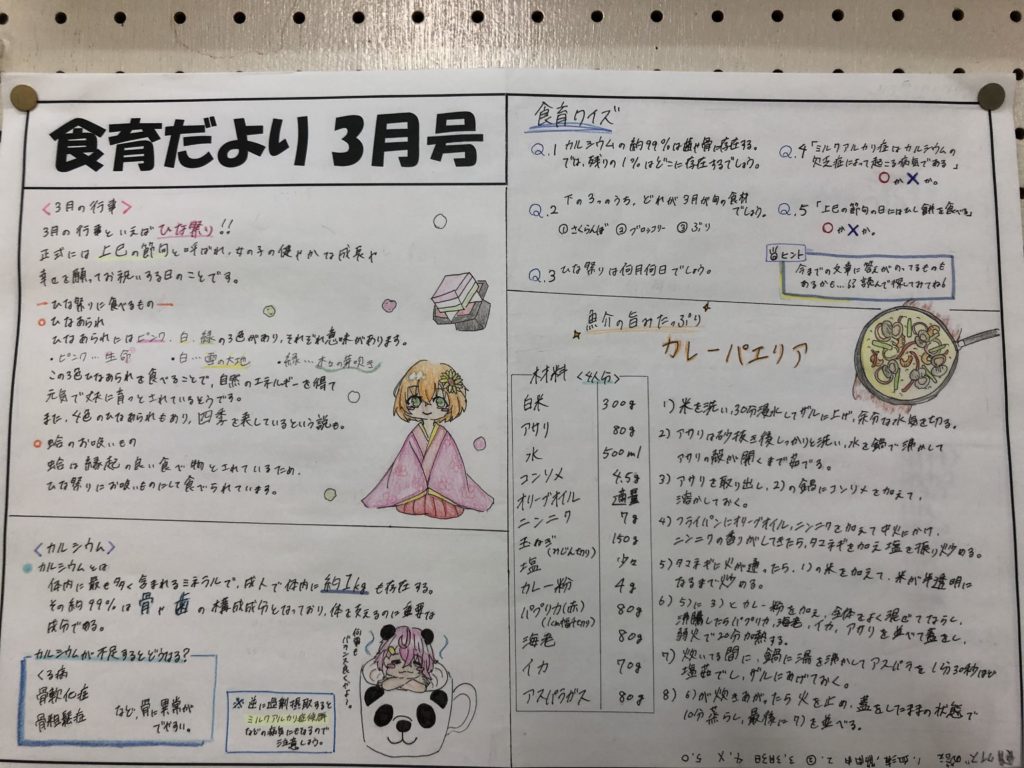 食育だより 3月号
〈3月の行事〉
3月の行事といえばひな祭り!!
正式には上巳の節句と呼ばれ、女の子の健やかな成長や
幸せを願ってお祝いする日のことです。
ひな祭りに食べるもの
ひなあられ
ひなあられにはピンク、白、緑の3色があり、それぞれ意味があります。
・ピンク…生命 ・白…雪の大地 ・緑…木々の芽吹き
この3色ひなあられを食べることで、自然のエネルギーを得て
元気で丈夫に育つとされているそうです。
また、4色のひなあられもあり、四季を表しているという説も。
蛤のお吸いもの
蛤は縁起の良い食べ物とされているため、
ひな祭りにお吸いものにして食べられています。
〈カルシウム〉
カルシウムとは
体内に最も多く含まれるミネラルで、成人で体内に約1kgも存在する。
その約99%は骨や歯の構成成分となっており、体を支えるのに重要な
成分である。
カルシウムが不足するとどうなる?
くる病
骨軟化症
骨粗鬆症
など、骨に異常が
でやすい。
※逆に過剰摂取すると
ミルクアルカリ症候群
などの病気にもなるので
注意しよう。
何事も
バランス良くだよ~
食育クイズ
Q.1 カルシウムの約99%は歯や骨に存在する。
では、残りの1%はどこに存在するでしょう。
Q.2 下の3つのうち、どれが3月が旬の食材
でしょう。
①さくらんぼ ②ブロッコリー ③ぶり
Q.3 ひな祭りは何月何日でしょう。
Q.4 「ミルクアルカリ症はカルシウムの
欠乏症によって起こる病気である」
○か×か。
Q.5 「上巳の節句の日にはひし餅を食べる」
○か×か。
ヒント
今までの文章に答えがのってるものも
あるかも…!?読んで探してみてね!
魚介の旨みたっぷり
カレーパエリア
材料〈4人分〉
白米 300g
アサリ 80g
水 500ml
コンソメ 4.5g
オリーブオイル 適量
ニンニク 7g
玉ねぎ(みじん切り) 150g
塩 少々
カレー粉 4g
パプリカ(赤)(1cm幅切り) 80g
海老 80g
イカ 70g
アスパラガス 80g
1)米を洗い、30分浸水してザルに上げ、余分な水気を切る。
2)アサリは砂抜き後しっかりと洗い、水を鍋で沸かして
アサリの殻が開くまで茹でる。
3)アサリを取り出し、2)の鍋にコンソメを加えて、
溶かしておく。
4)フライパンにオリーブオイル、ニンニクを加えて中火にかけ、
ニンニクの香りがしてきたら、タマネギを加え塩を振り炒める。
5)タマネギに火が通ったら、1)の米を加えて、米が半透明に
なるまで炒める。
6)5)に3)とカレー粉を加え、全体をよく混ぜてならし、
沸騰したらパプリカ、海老、イカ、アサリを並べて蓋をし、
弱火で20分加熱する。
7)炊いてる間に、鍋に湯を沸かしてアスパラを1分30秒ほど
塩茹でし、ザルにあげておく。
8)6)が炊きあがったら火を止め、蓋をしたままの状態で
10分蒸らし、最後に7)を並べる。
3.3月3日 4.× 5.○